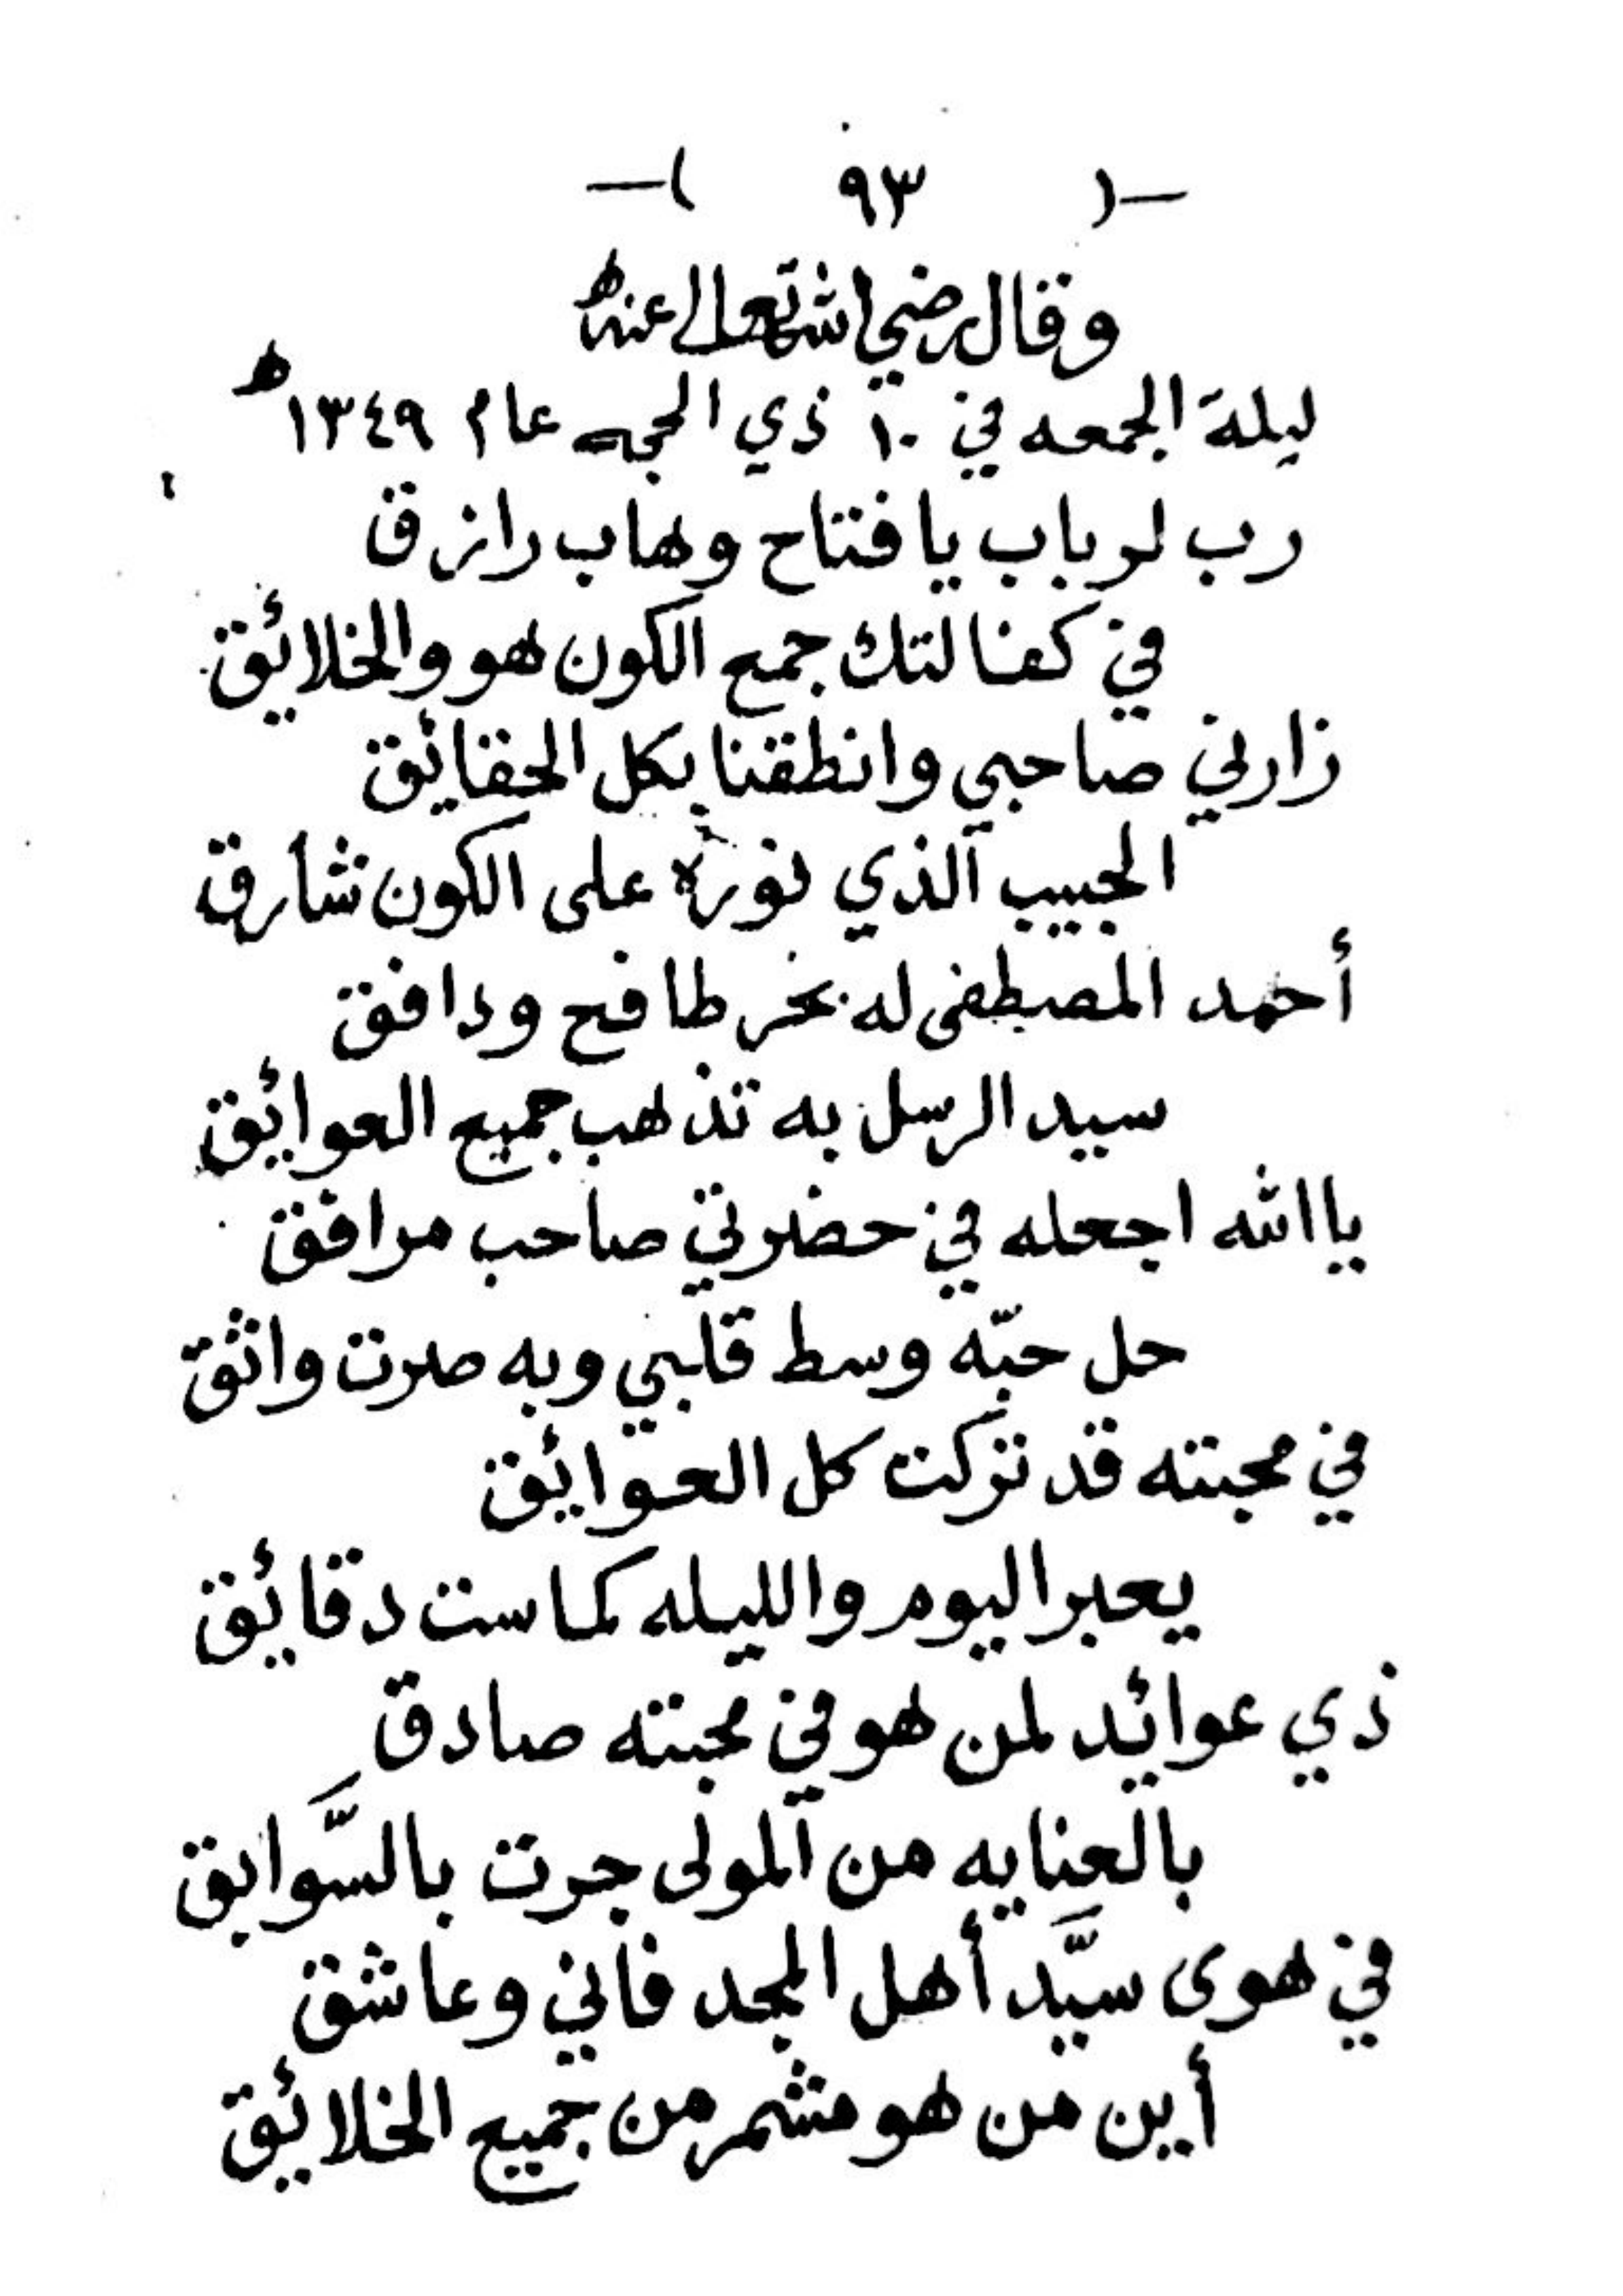 -( ٩٣ )-
وقال رضي الله تعالى عنه
ليلة الجمعه في ١٠ ذي الحجه عام ١٣٤٩ ه
رب لرباب يا فتاح وهاب رازق
في كفالتك جمع الكون هو والخلائق
زارني صاحبي وانطقنا بكل الحقائق
الحبيب الذي نوره على الكون شارق
أحمد المصطفى له بحر طافح ودافق
سيد الرسل به تذهب جميع العوائق
يا الله اجعله في حضرتي صاحب مرافق
حل حبّه وسط قلبي وبه صرت واثق
في محبته قد تركت كل العوائق
يعبر اليوم والليله كما ست دقائق
ذي عوائد لمن هو في محبته صادق
بالعنايه من المولى جرت بالسَّوابق
في هوى سيَّد أهل المجد فاني وعاشق
أين من هو مشمر من جميع الخلائق